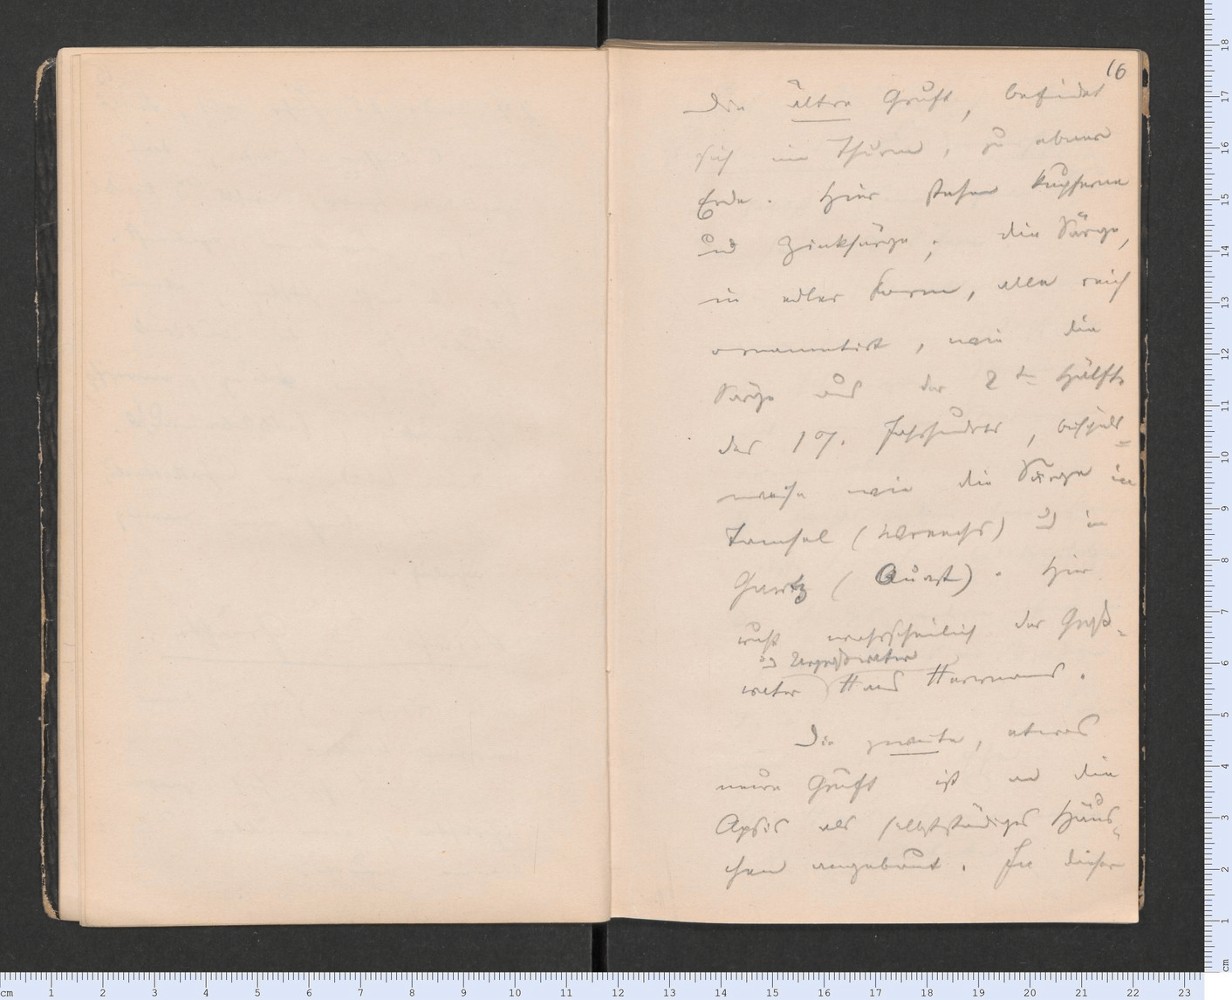 16
Die ältre Gruft, befindet
sich im Thurm, zu ebner
Erde. Hier stehen kupferne
und Zinksärge; die Särge,
in edler Form, alle reich
ornamentirt, wie die
Särge aus der 2ten Hälfte
des 17. Jahrhunderts, beispiels=
weise wie die Särge in
Tamsel (Wreechs) und in
Gartz (Quast). Hier
ruht wahrscheinlich der Groß=
und Urgroßvater
vater Hans Herrmanns.
Die zweite, etwas
neure Gruft ist an die
Apsis als selbstständiges Häus=
chen angebaut. In dieser